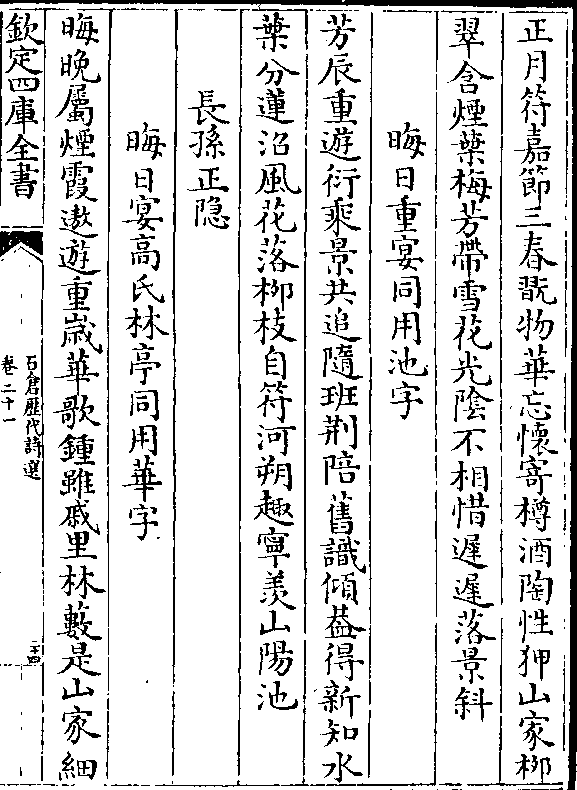 正月符嘉節三春翫物華忘懷寄樽酒陶性狎山家栁
翠含煙葉梅芳帶雪花光陰不相惜遲遲落景斜
晦日重宴同用池字
芳辰重遊衍乘景共追隨班荆陪舊識傾葢得新知水
葉分蓮沼風花落栁枝自符河朔趣寧羨山陽池
長孫正隐
晦日宴高氏林亭同用華字
晦晚屬煙霞遨遊重歳華歌鍾雖戚里林藪是山家細
欽定四庫全書
石倉歴代詩選
卷二十一
二十四